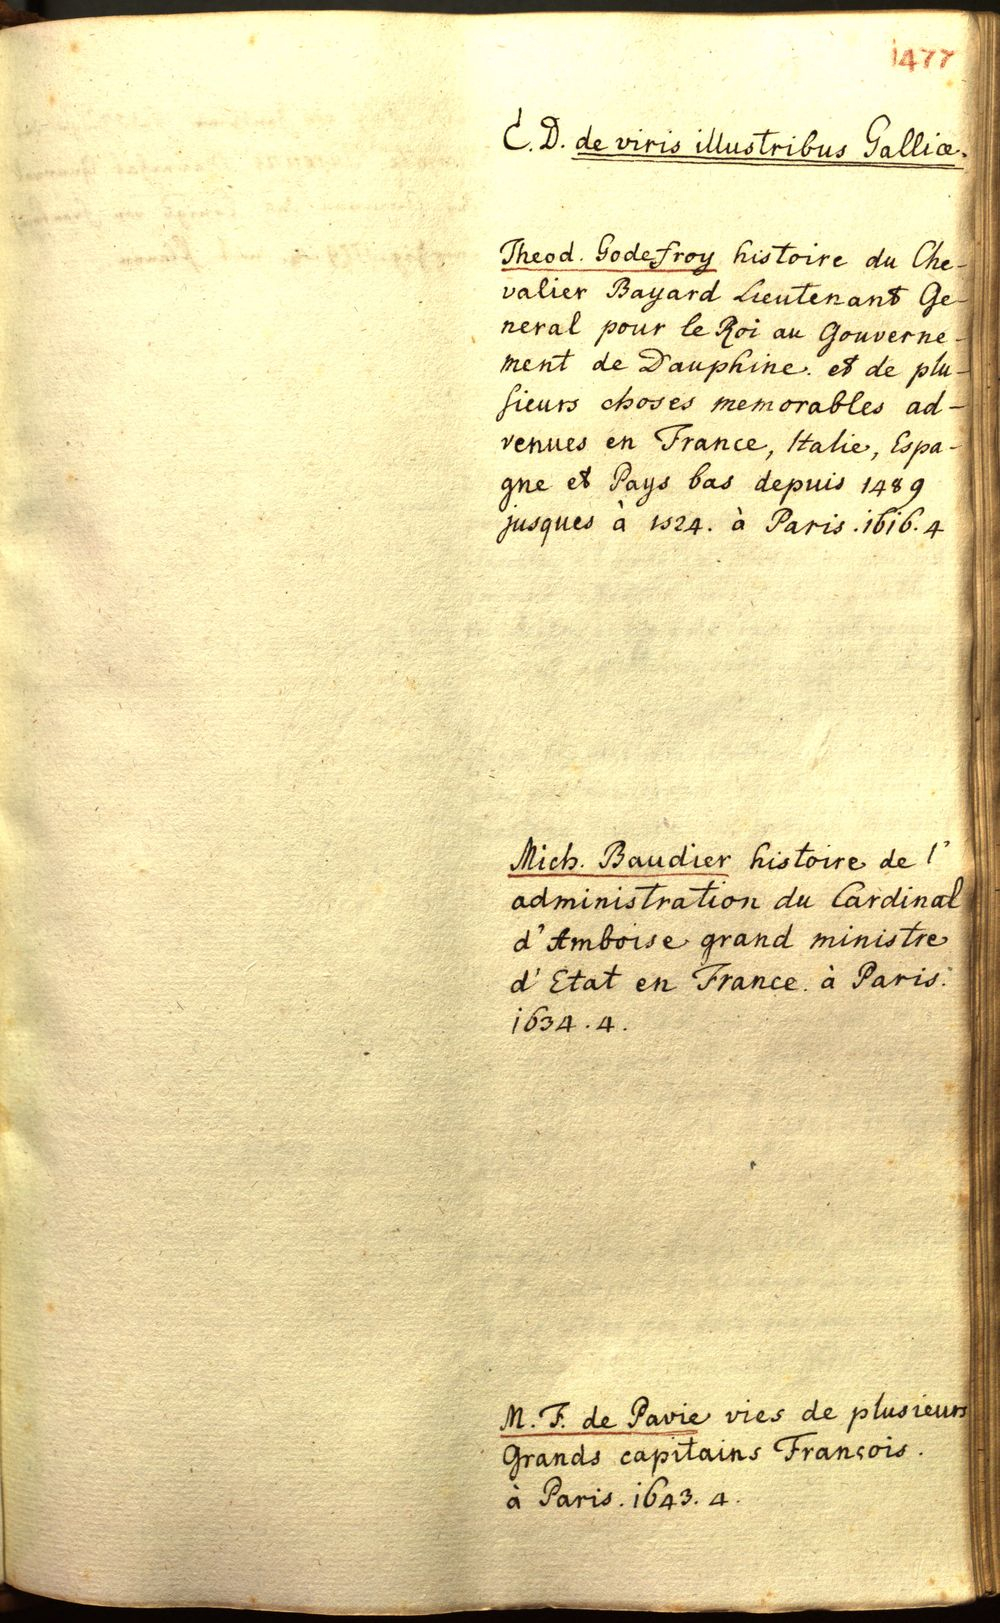 1477
C. D. de viris illustribus Galliæ.
Theod. Godefroy histoire du Che-
valier Bayard Lieutenant Ge-
neral pour le Roi au Gouverne-
ment de Dauphine. et de plu-
sieurs choses memorables ad-
venues en France, Italie, Espa-
gne et Pays bas depuis 1489
jusques à 1524. à Paris. 1616. 4
Mich. Baudier histoire de l'
administration du Cardinal
d'Amboise grand ministre
d'Etat en France. à Paris.
1634. 4.
M. F. de Pavie vies de plusieurs
Grands capitains François.
à Paris. 1643. 4.